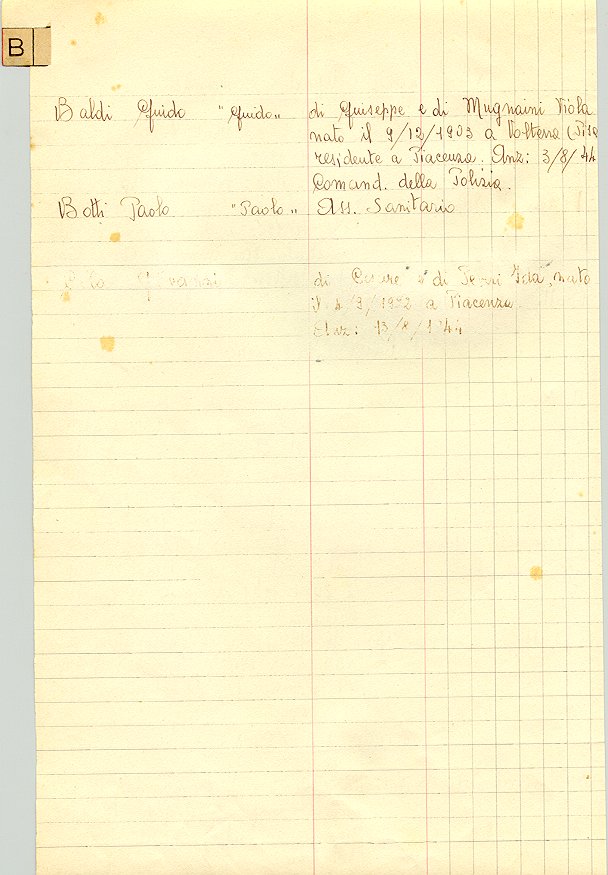 B
Baldi Guido "Guido" di Giuseppe e di Mugnaini Viola
nato il 9/12/1903 a Volterra (Pisa
residente a Piacenza. Anz: 3/8/44
Comand. della Polizia.
Botti Paolo "Paolo" Ass. Sanitario
di Cesare e di Ida, nato
il a Piacenza.
Anz: 13/8/1944